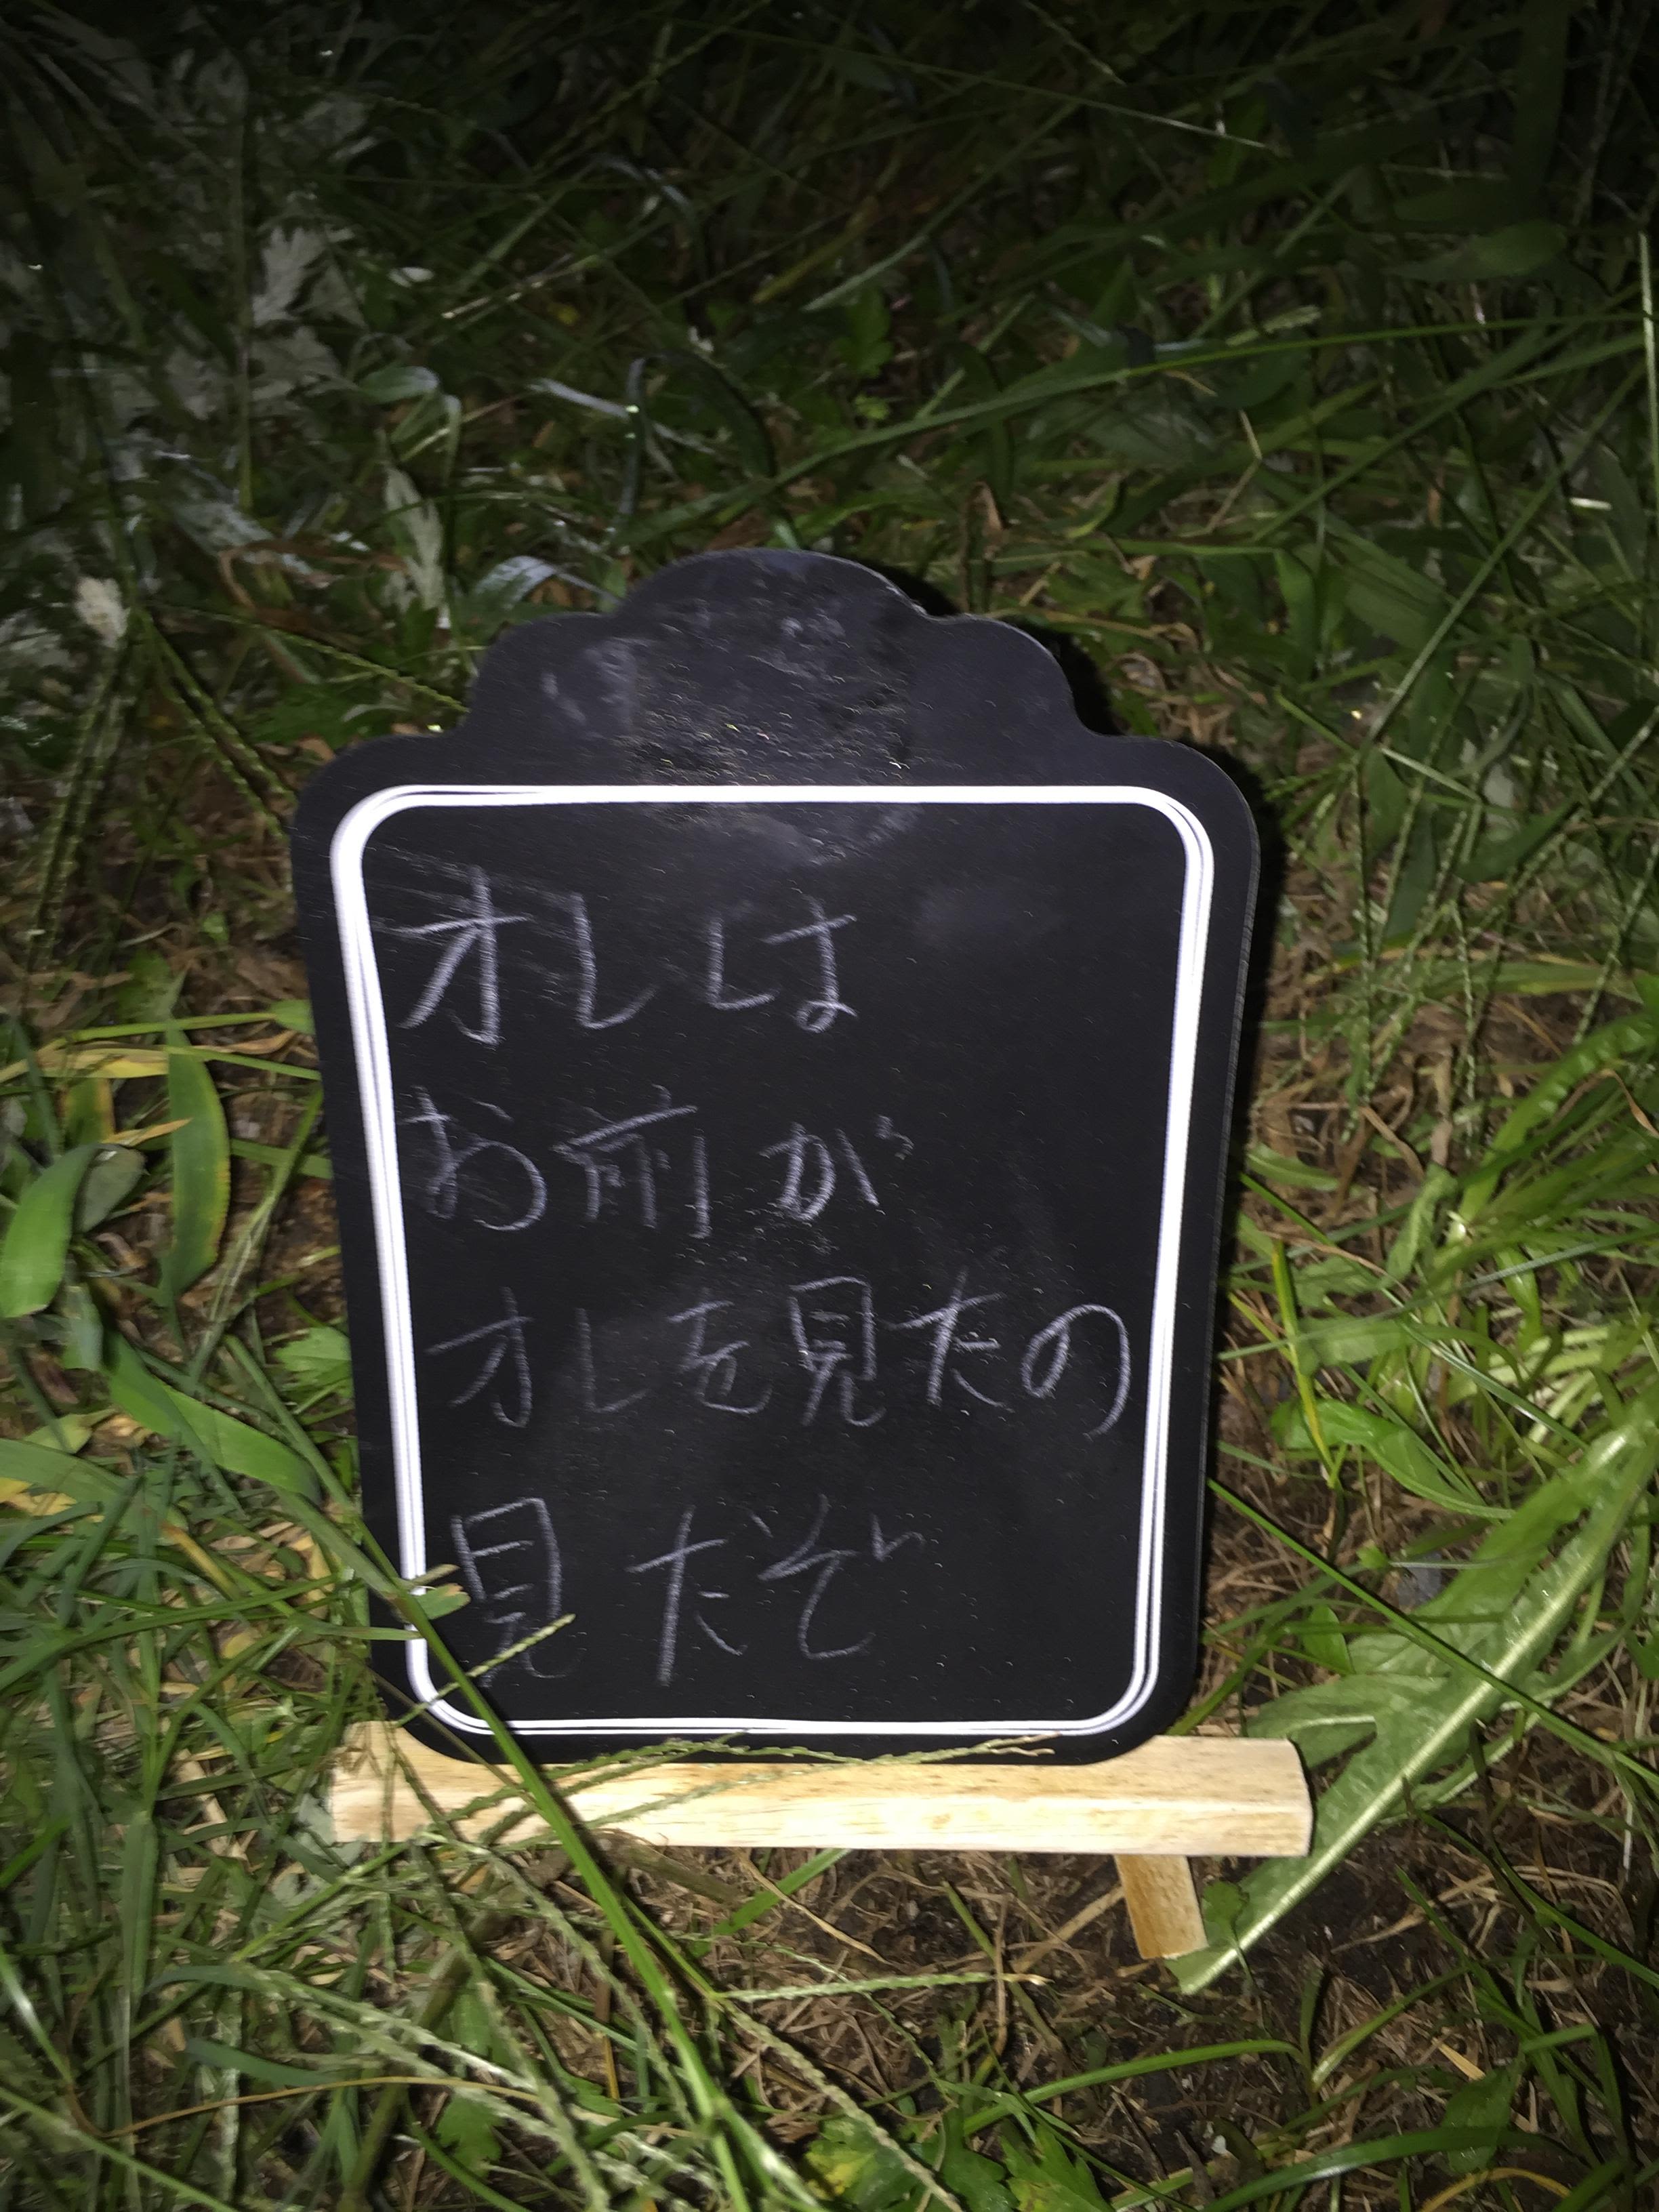 オレは
お前が
オレを見たの
見たぞ